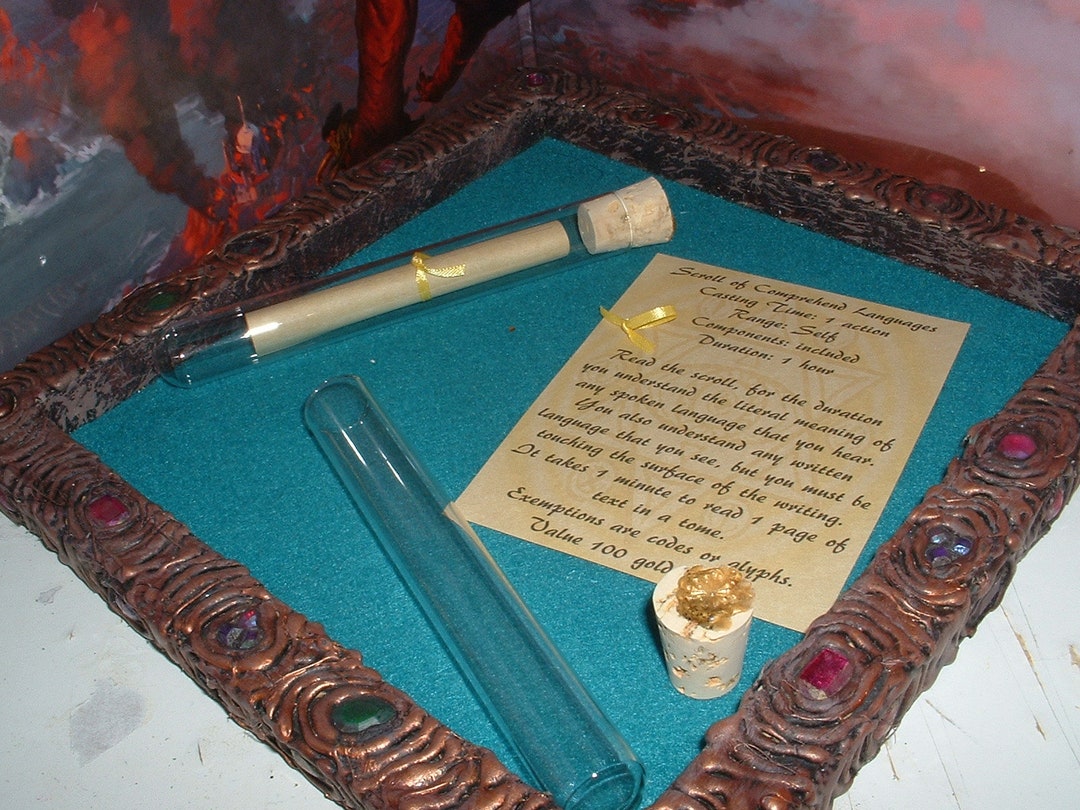 Scroll of Comprehend Languages
Casting Time: 1 action
Range: Self
Components: included
Duration: 1 hour
Read the scroll, for the duration
you understand the literal meaning of
any spoken language that you hear.
You also understand any written
language that you see, but you must be
touching the surface of the writing.
It takes 1 minute to read 1 page of
text in a tome.
Exemptions are codes or glyphs.
Value 100 gold